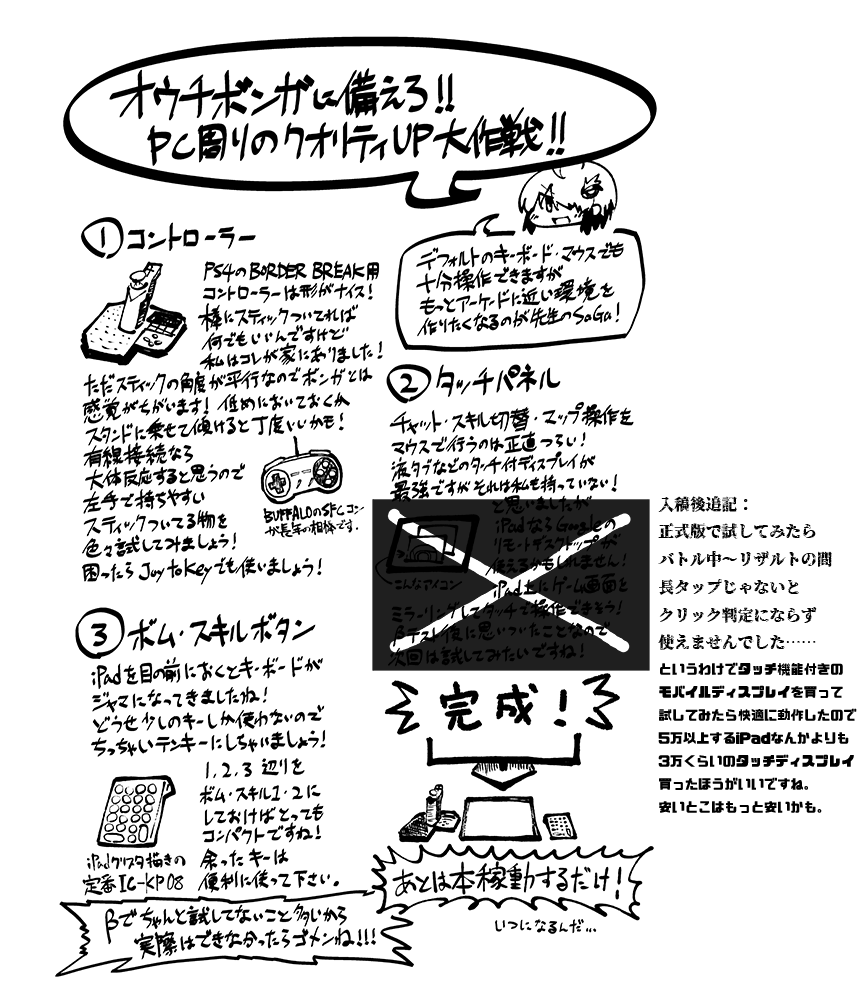 オウチボンガに備えろ!!
PC周りのクオリティUP大作戦!!
デフォルトのキーボード・マウスでも
十分操作できますが
もっとアーケードに近い環境を
作りたくなるのが先生のSaGa!
① コントローラー
PS4のBORDER BREAK用
コントローラーは形がナイス!
棒にスティックついてれば
何でもいいんですけど
私はコレが家にありました!
ただスティックの角度が平行なのでボンガとは
感覚がちがいます! 低めにおいておくか
スタンドに乗せて傾けると丁度いいかも!
有線接続なら
大体反応すると思うので
左手で持ちやすい
スティックついてる物を
色々試してみましょう!
困ったらJoyToKeyでも使いましょう!
BUFFALOのSFCコン
が長年の相棒です。
② タッチパネル
チャット・スキル切替・マップ操作を
マウスで行うのは正直つらい!
液タブなどのタッチ付ディスプレイが
最強ですがそれは私も持っていない!
と思いましたが
iPadならGoogleの
リモートデスクトップが
使えるかもしれません!
こんなアイコン
iPad上にゲーム画面を
ミラーリングしてタッチで操作できそう!
βテスト後に思いついたことなので
次回は試してみたいですね!
入稿後追記:
正式版で試してみたら
バトル中〜リザルトの間
長タップじゃないと
クリック判定にならず
使えませんでした……
というわけでタッチ機能付きの
モバイルディスプレイを買って
試してみたら快適に動作したので
5万以上するiPadなんかよりも
3万くらいのタッチディスプレイ
買ったほうがいいですね。
安いとこはもっと安いかも。
③ ボム・スキルボタン
iPadを目の前におくとキーボードが
ジャマになってきましたね!
どうせ少しのキーしか使わないので
ちっちゃいテンキーにしちゃいましょう!
1,2,3 辺りを
ボム・スキル1・2に
しておけばとっても
コンパクトですね!
余ったキーは
便利に使って下さい。
iPadクリスタ描きの
定番IC-KP08
βでちゃんと試してないこと多いから
実際はできなかったらゴメンね!!!
完成!
あとは本稼動するだけ!
いつになるんだ…